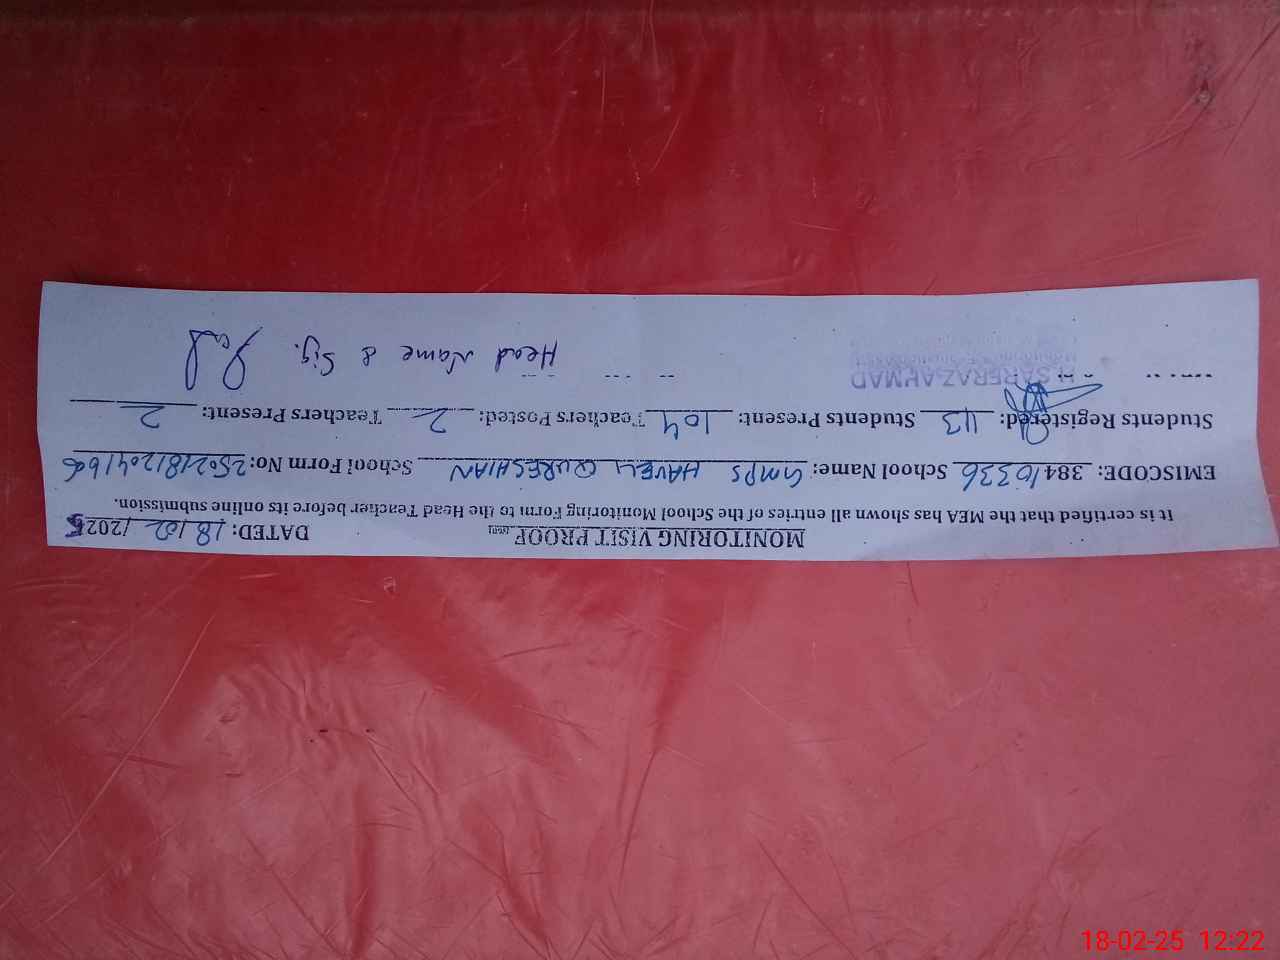 MONITORING VISIT PROOF
DATED: 18/02/2025
It is certified that the MEA has shown all entries of the School Monitoring Form to the Head Teacher before its online submission.
EMISCODE: 38410336 School Name: GMPS HAVELI QURESHIAN School Form No:
Students Registered: 113 Students Present: 104 Teachers Posted: 2 Teachers Present: 2
SARFRAZ AHMAD
Head Name & Sig.
18-02-25 12:22